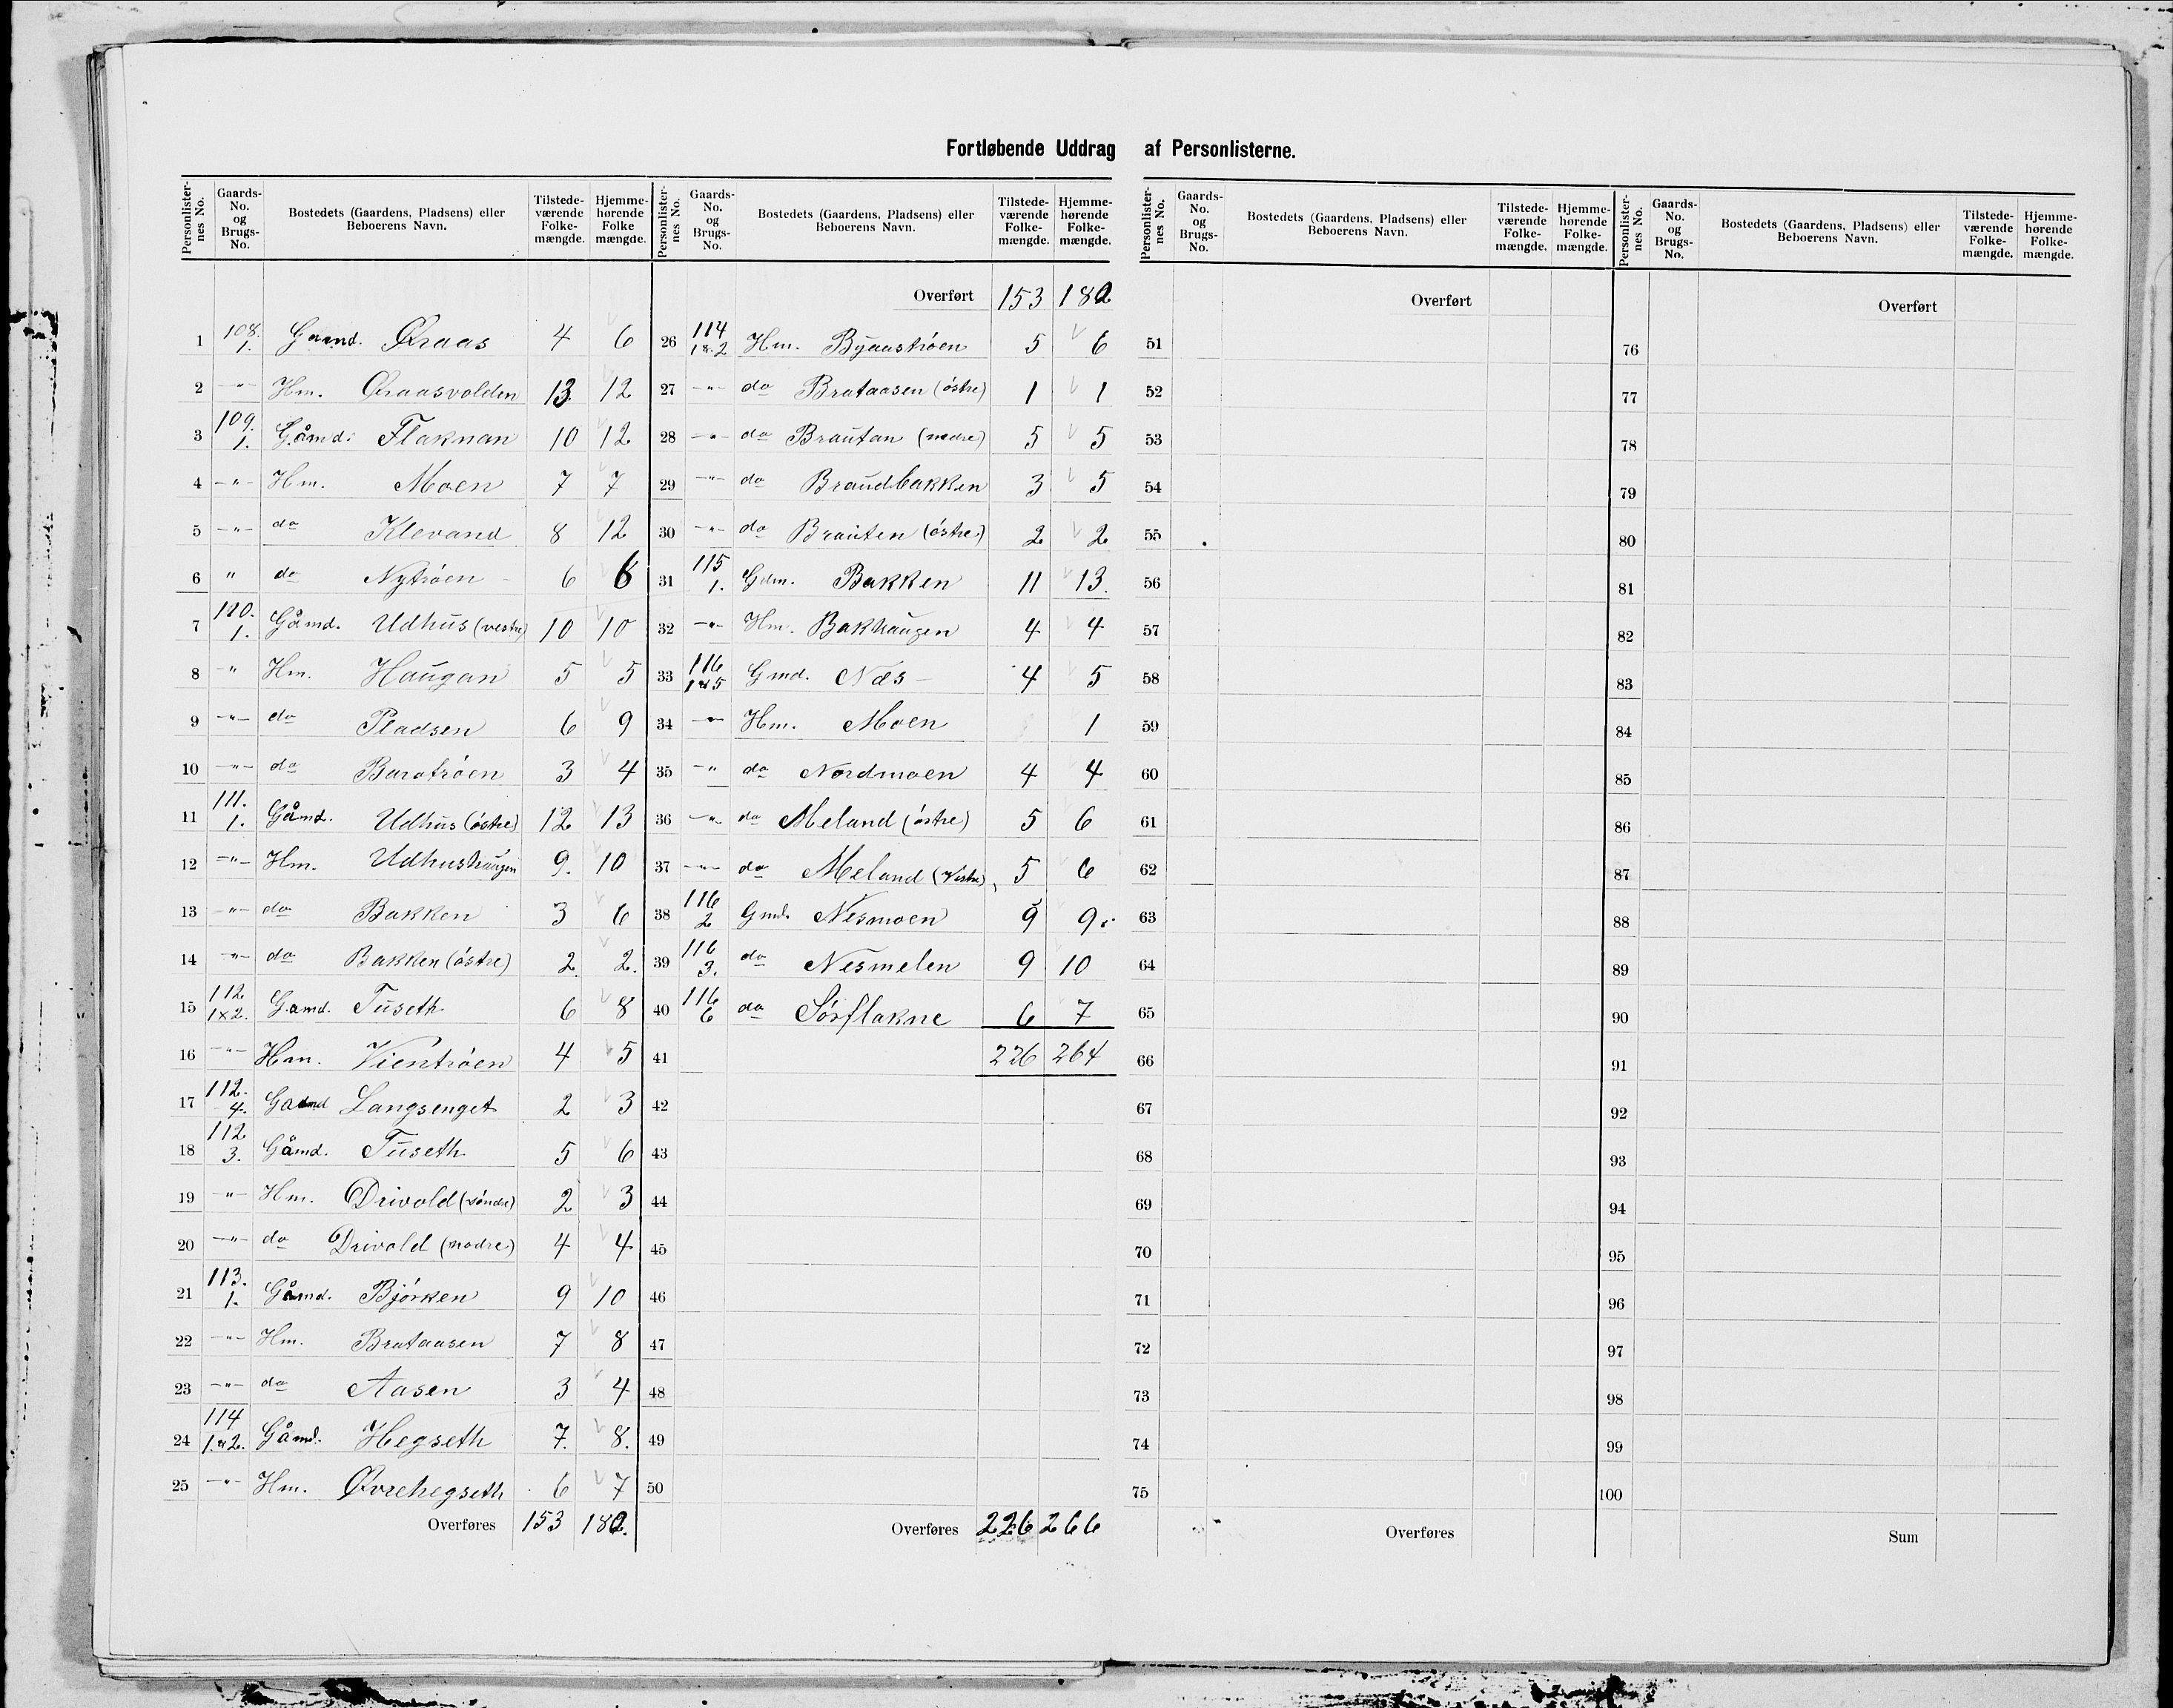 Fortløbende Uddrag af Personlisterne.
Personlister-nes No. Gaards-No. og Brugs-No. Bostedets (Gaardens, Pladsens) eller Beboerens Navn. Tilstede-værende Folke-mængde. Hjemme-hørende Folke mængde.
1 108. 1. Gaamd. Øraas 4 6
2 -"- Hm. Øraasvolden 13 12
3 109. 1. Gåmd. Flaknan 10 12
4 -"- Hm. Moen 7 7
5 -"- do Klevand 8 12
6 " do Nytrøen 6 6
7 110. 1. Gåmd. Udhus (vestre) 10 10
8 -" Hm. Haugan 5 5
9 -"- do Pladsen 6 9
10 -"- do Baratrøen 3 4
11 111. 1. Gåmd. Udhus (østre) 12 13
12 -"- Hm. Udhushaugen 9. 10
13 -"- do Bakken 3 6
14 -"- do Bakken (østre) 2. 2.
15 112 1x2. Gamd. Tuseth 6 8
16 -"- Hm. Vientrøen 4 5
17 112. 4. Gaamd Langsenget 2 3
18 112 3. Gåmd. Tuseth 5 6
19 -"- Hm. Drivold (søndre) 2 3
20 -"- do Drivold (nodre) 4 4
21 113. 1. Gåmd. Bjørken 9 10
22 -"- Hm. Brataasen 7 8
23 -"- do Aasen 3 4
24 114 1.&2. Gåmd. Hegseth 7. 8.
25 -"- Hm. Øvrehegseth 6 7
Overføres 153 182.
Personlister-nes No. Gaards-No. og Brugs-No. Bostedets (Gaardens, Pladsens) eller Beboerens Navn. Tilstede-værende Folke-mængde. Hjemme-hørende Folke-mængde.
Overført 153 182
26 114 1&2 Hm. Byaastrøen 5 6
27 -"- do Brataasen (østre) 1 1
28 -"- do Brautan (nedre) 5 5
29 -"- do Braudbakken 3 5
30 -"- do Brauten (østre) 2 2
31 115 1. Gdm. Bakken 11 13.
32 -"- Hm. Bakhaugen 4 4
33 116 1&5 Gmd. Næs 4 5
34 -"- Hm. Moen 1
35 -" do Nordmoen 4 4
36 -"- do Meland (østre) 5 6
37 -"- do Meland (Vestre) 5 6
38 116 2 Gmd. Nesmoen 9 9.
39 116 3. do Nesmelen 9 10
40 116 6 do Sørflakne 6 7
41 226 264
42
43
44
45
46
47
48
49
50
Overføres 226 266
Personlister-nes No. Gaards-No. og Brugs-No. Bostedets (Gaardens, Pladsens) eller Beboerens Navn. Tilstede-værende Folke-mængde. Hjemme-hørende Folke-mængde.
Overført
51
52
53
54
55
56
57
58
59
60
61
62
63
64
65
66
67
68
69
70
71
72
73
74
75
Overføres
Personlister-nes No. Gaards-No. og Brugs-No. Bostedets (Gaardens, Pladsens) eller Beboerens Navn. Tilstede-værende Folke-mængde. Hjemme-hørende Folke-mængde.
Overført
76
77
78
79
80
81
82
83
84
85
86
87
88
89
90
91
92
93
94
95
96
97
98
99
100
Sum